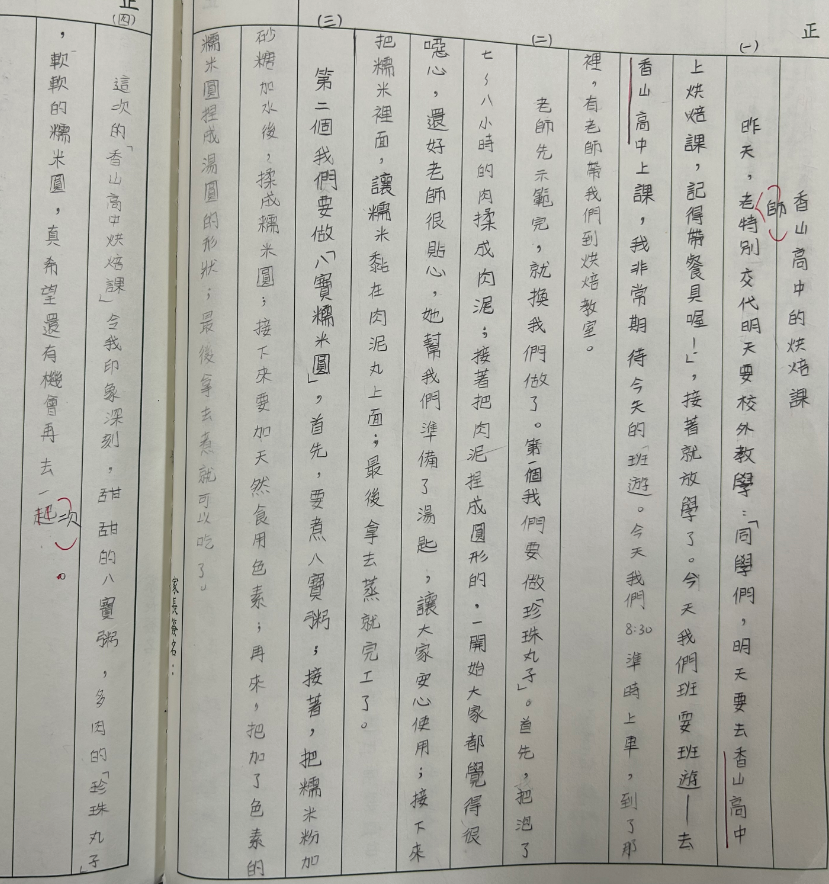 正
香山高中的烘焙課
(一)
昨天，老師特別交代明天要校外教學：「同學們，明天要去香山高中
上烘焙課，記得帶餐具喔！」，接著就放學了。今天我們班要班遊——去
香山高中上課，我非常期待今天的「班遊。今天我們8:30準時上車，到了那
裡，有老師帶我們到烘焙教室。
(二)
老師先示範完，就換我們做了。第一個我們要做「珍珠丸子」。首先，把泡了
七～八小時的肉揉成肉泥；接著把肉泥捏成圓形的，一開始大家都覺得很
噁心，還好老師很貼心，她幫我們準備了湯匙，讓大家安心使用；接下來
把糯米裡面，讓糯米黏在肉泥丸上面；最後拿去蒸就完工了。
(三)
第二個我們要做「八寶糯米圓」，首先，要煮八寶粥；接著，把糯米粉加
砂糖加水後，揉成糯米圓；接下來要加天然食用色素；再來，把加了色素的
糯米圓捏成湯圓的形狀；最後拿去煮就可以吃了。
家長簽名：
正
(四)
這次的「香山高中烘焙課」令我印象深刻，甜甜的八寶粥，多肉的「珍珠丸子」
，軟軟的糯米圓，真希望還有機會再去一次起。